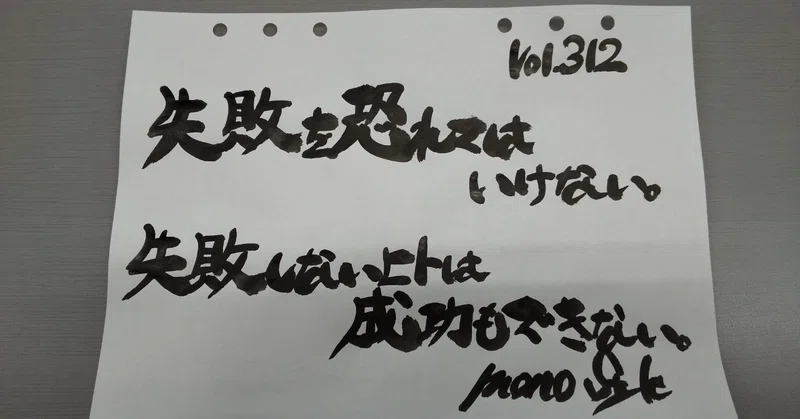 Vol.312
失敗を恐れては
いけない。
失敗しないヒトは
成功もできない。
mono